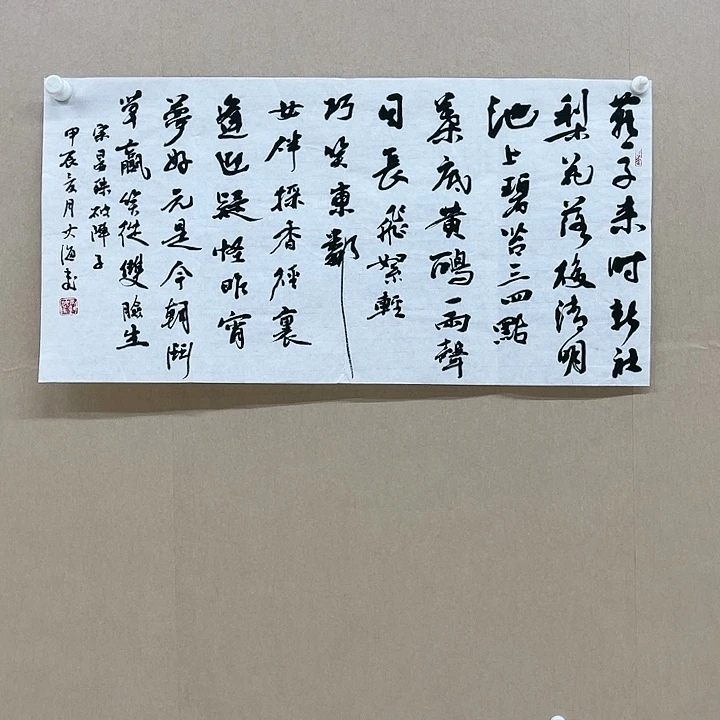 燕子来时新社
梨花落後清明
池上碧苔三四點
葉底黄鸝一兩聲
日長飛絮輕
巧笑東鄰
女伴採香徑裏
逢迎疑怪昨宵
夢好元是今朝鬥
草贏笑從雙臉生
宋晏殊破陣子
甲辰亥月海書